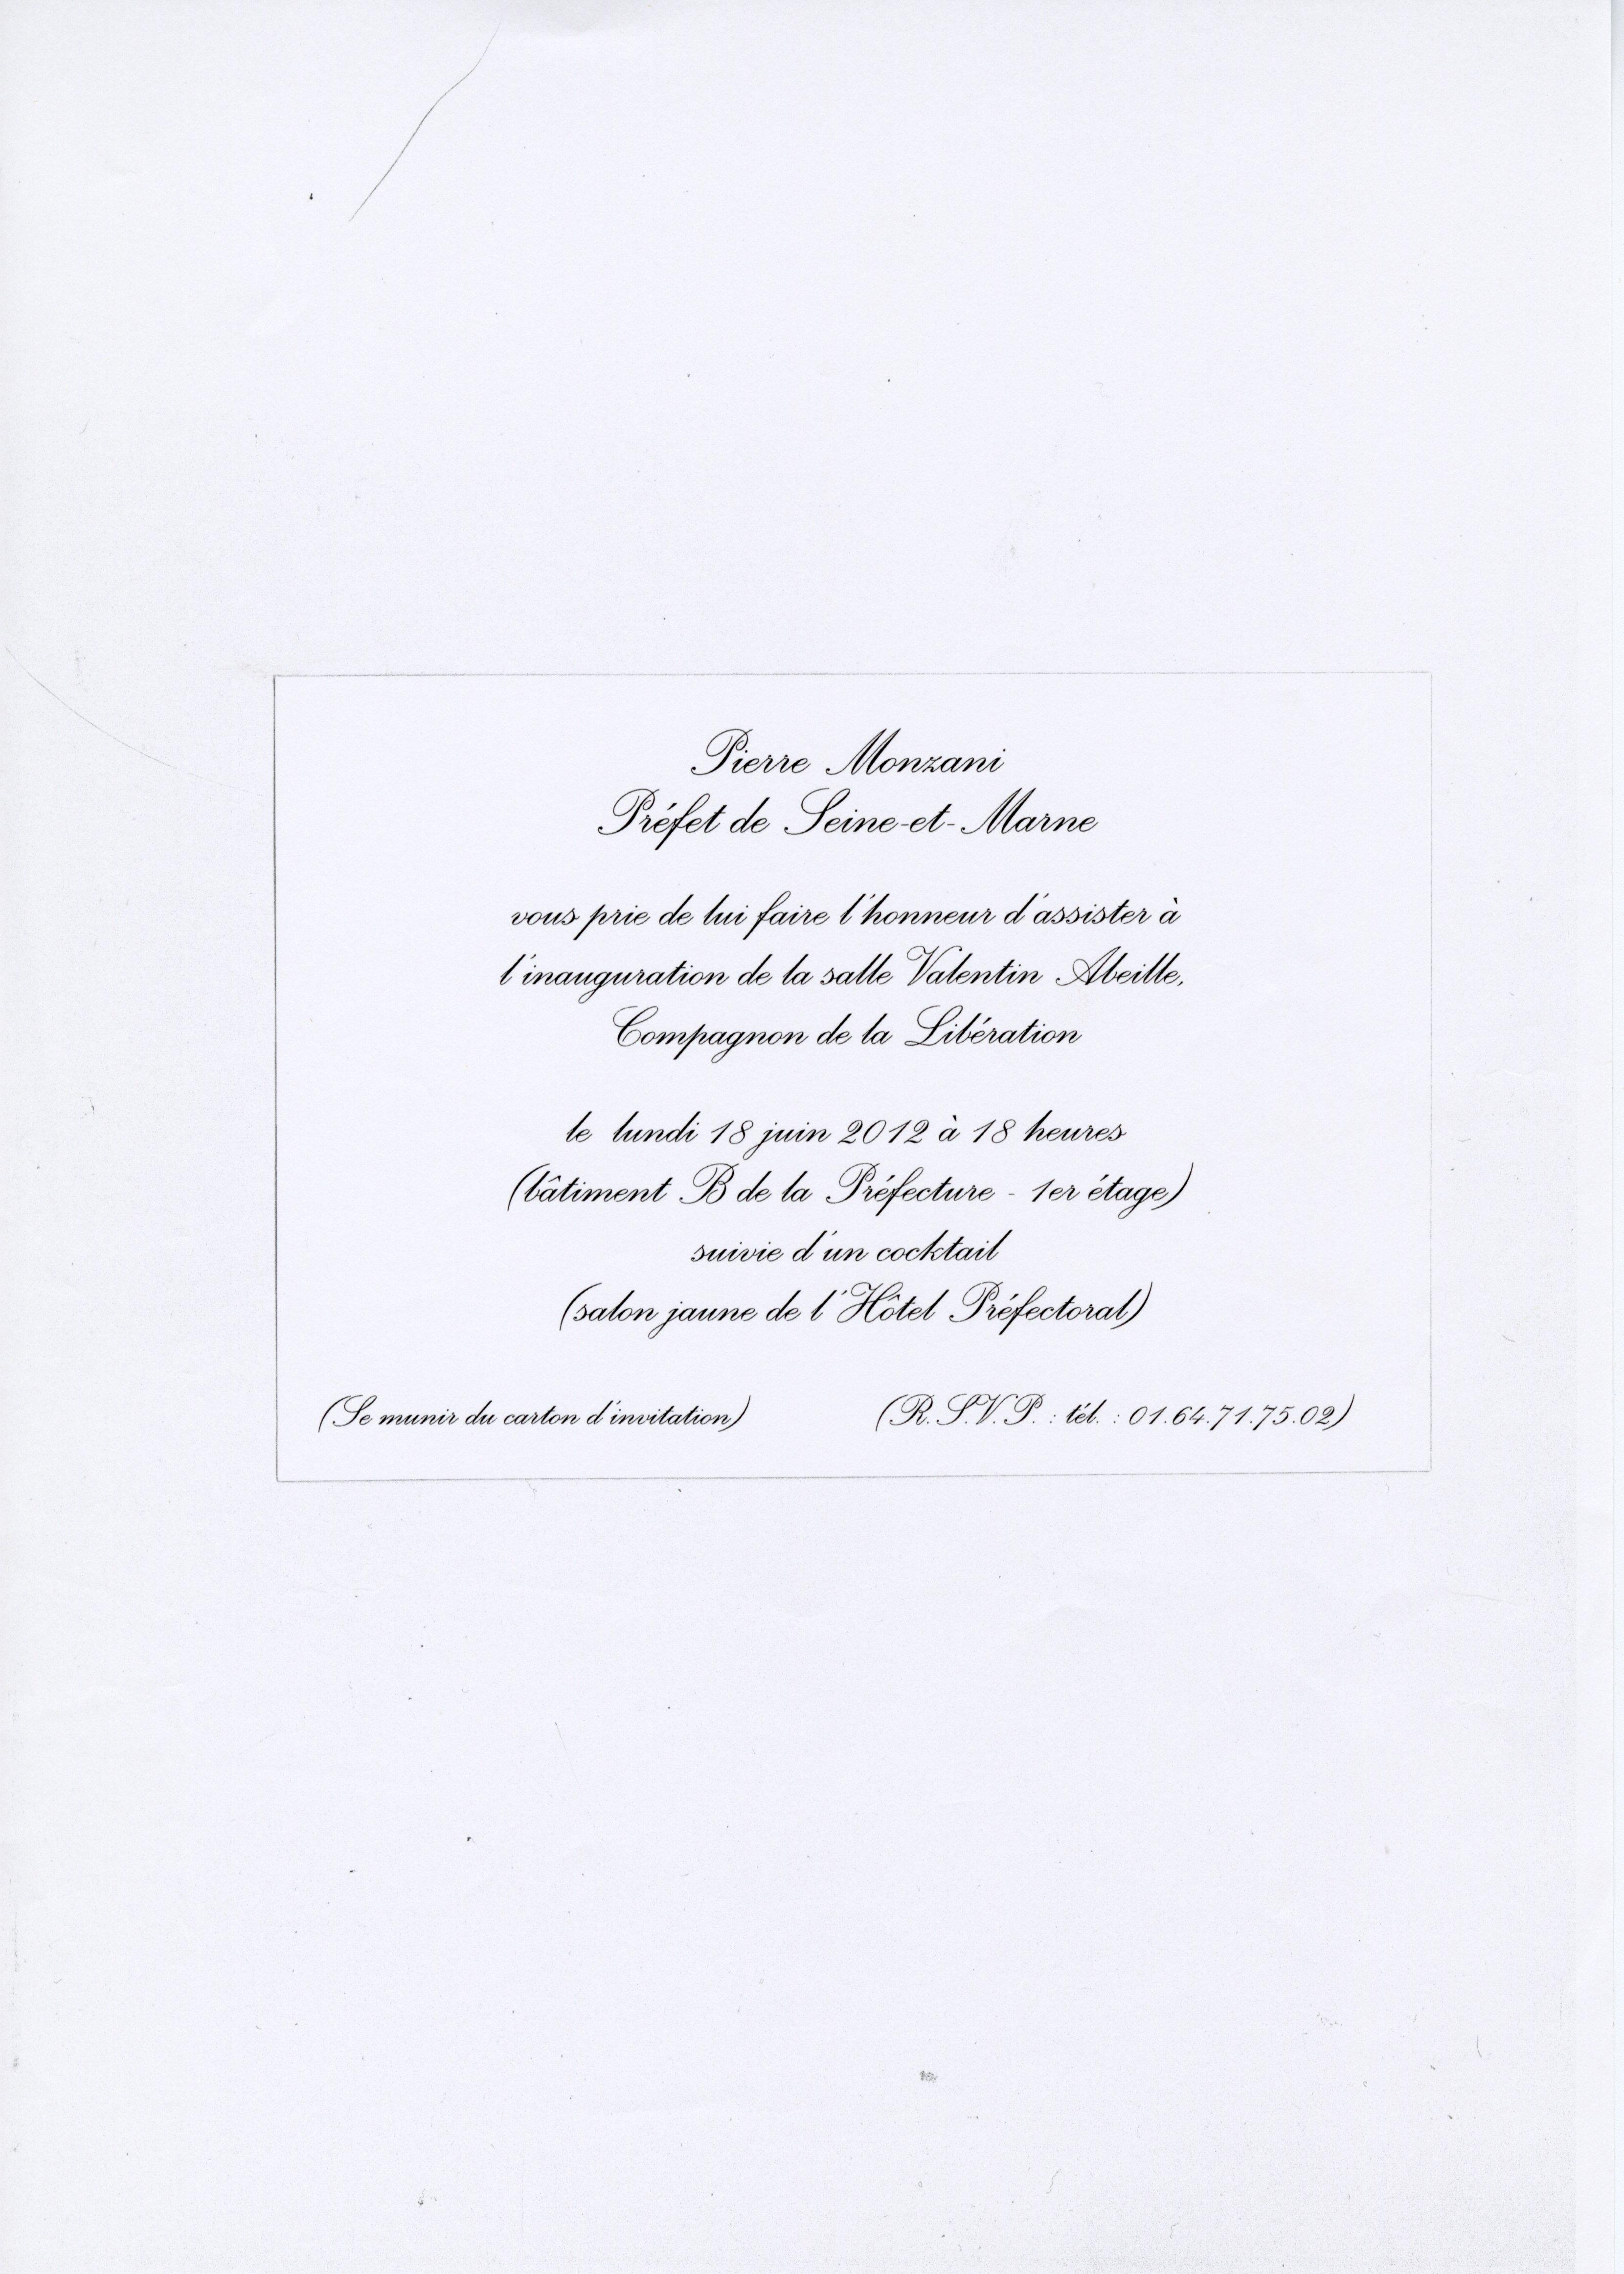 Pierre Monzani
Préfet de Seine-et-Marne
vous prie de lui faire l'honneur d'assister à
l'inauguration de la salle Valentin Abeille,
Compagnon de la Libération
le lundi 18 juin 2012 à 18 heures
(bâtiment B de la Préfecture - 1er étage)
suivie d'un cocktail
(salon jaune de l'Hôtel Préfectoral)
(Se munir du carton d'invitation) (R.S.V.P. : tél. : 01.64.71.75.02)